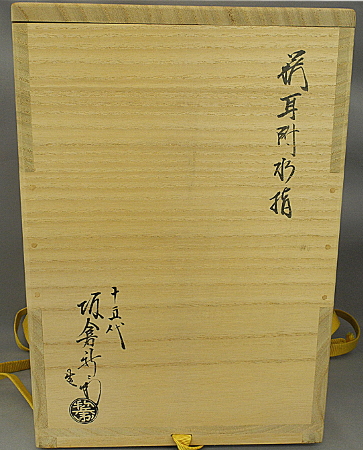 萩耳附水指
十五代
坂倉新兵衛
造